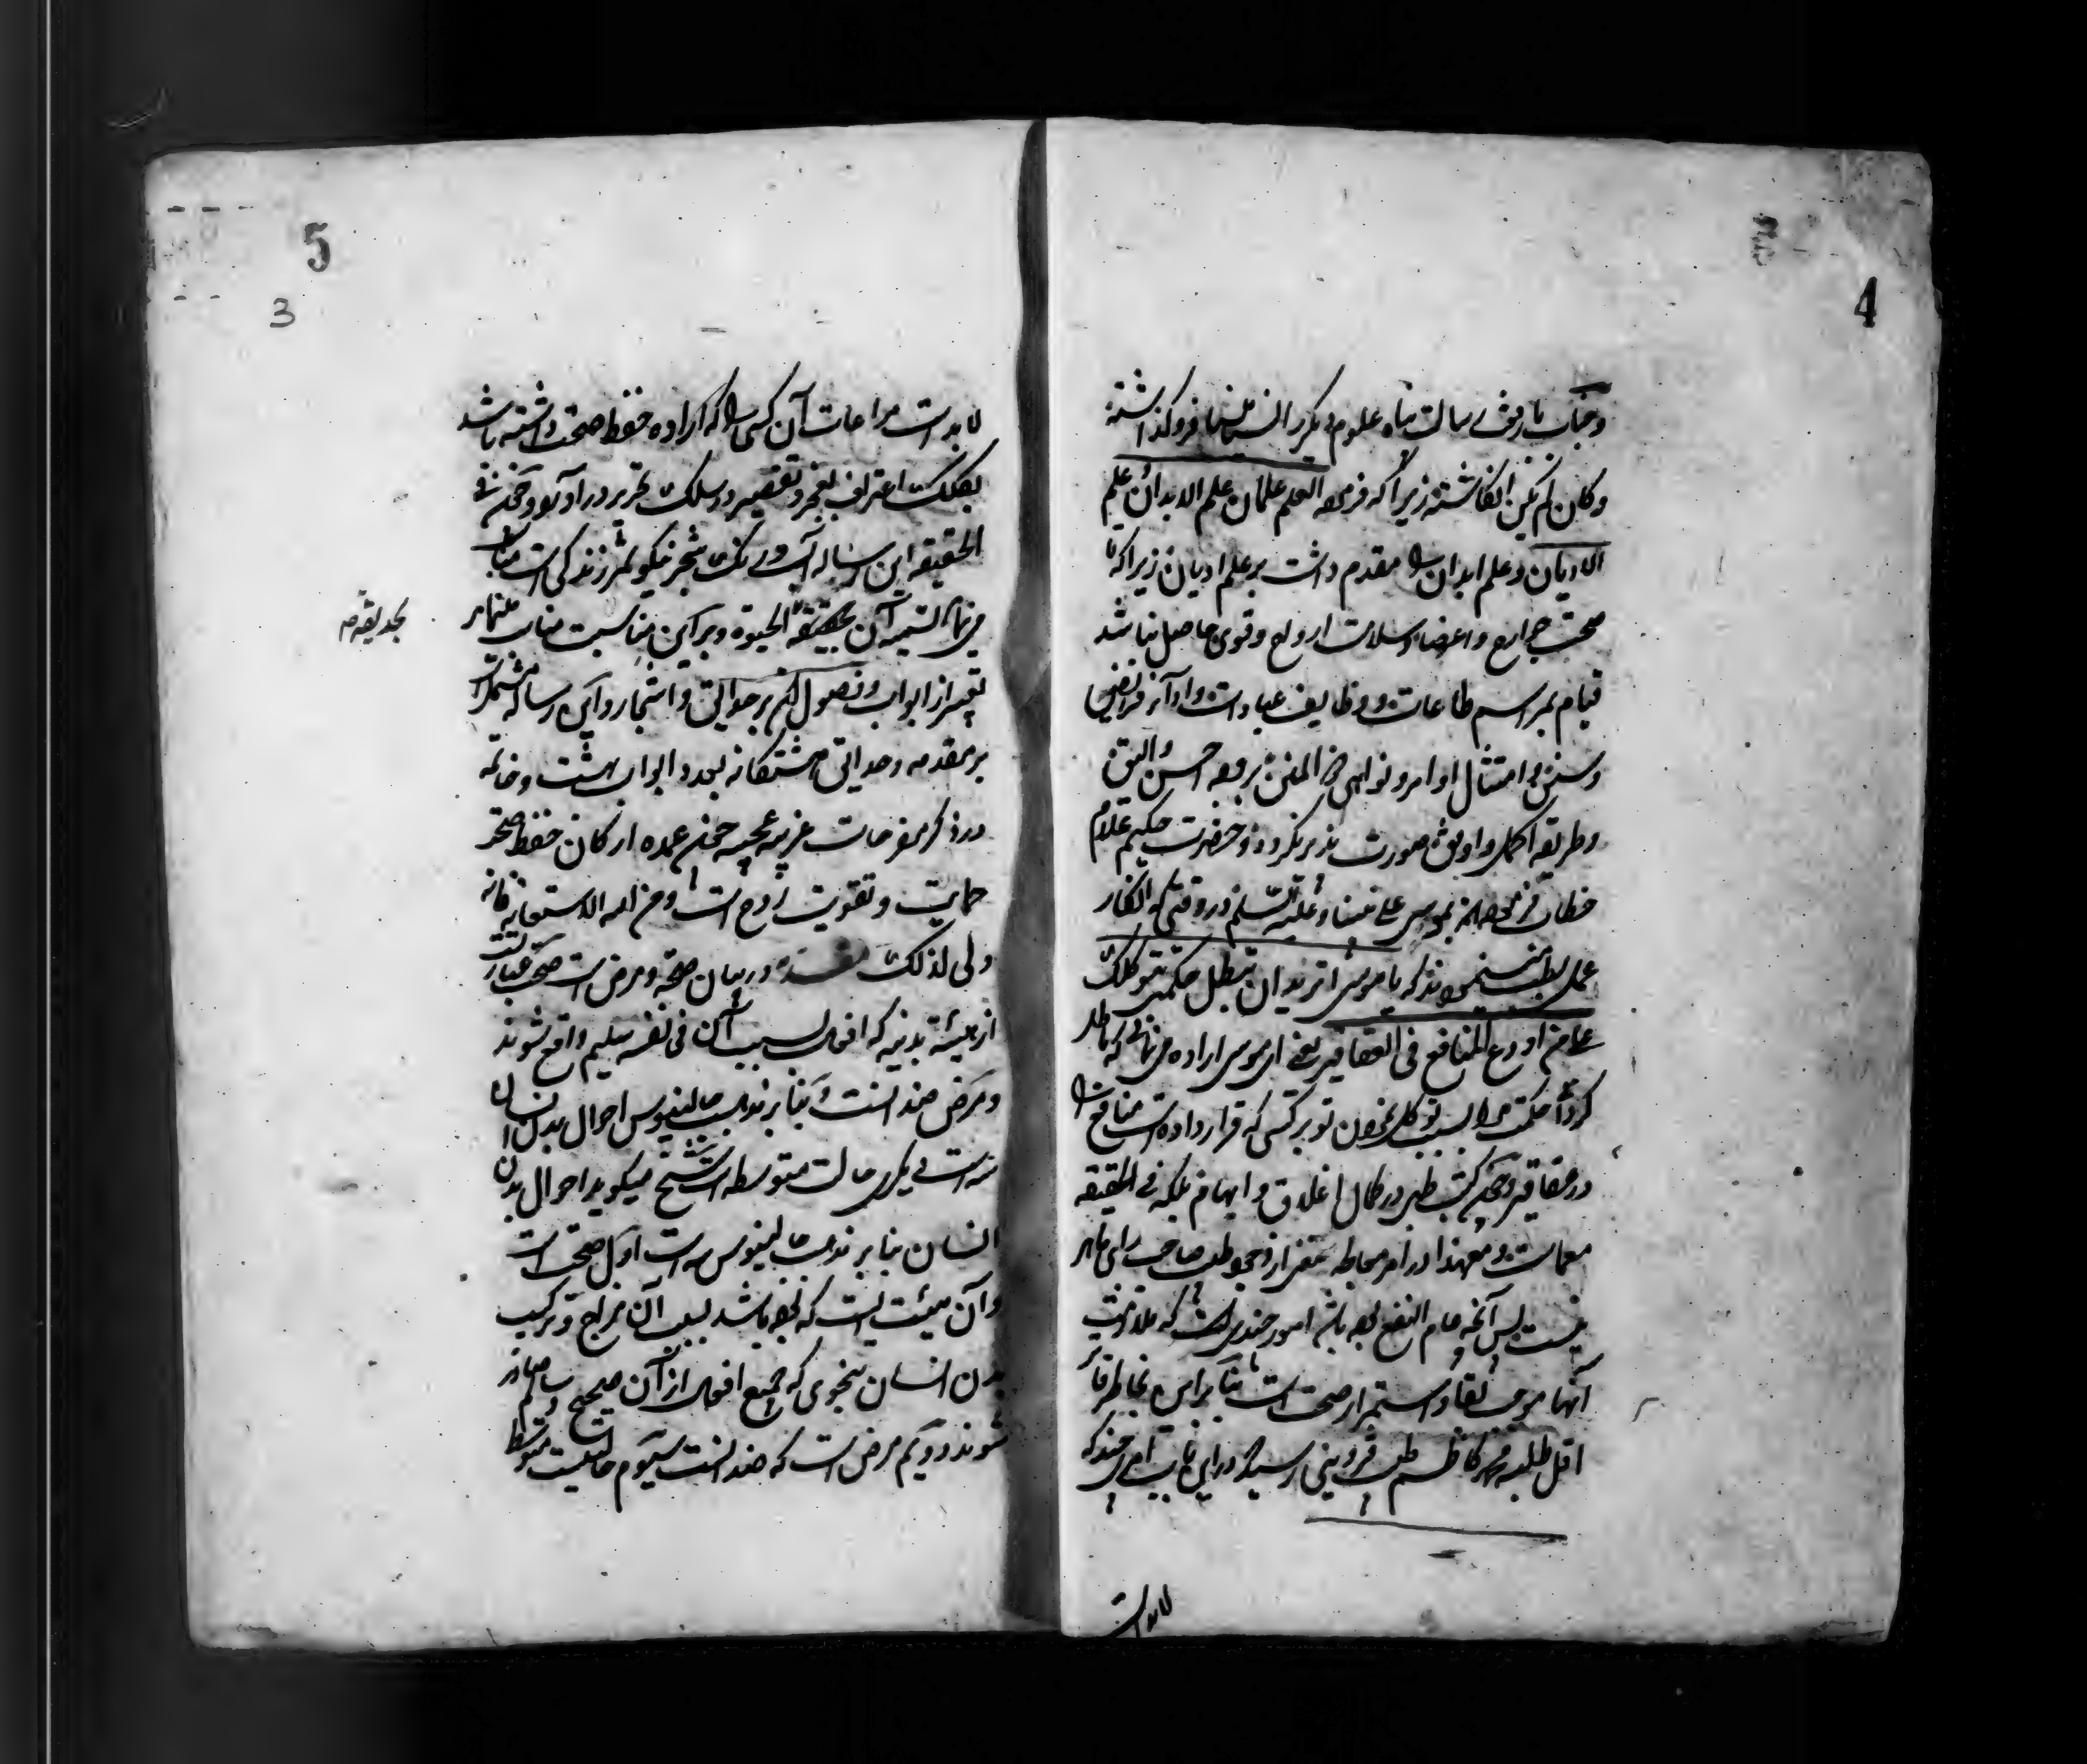 4
وجناب با رفعت رسالت پناه علوم دیگر را نسیا منسیا فروگذاشته
وکان لم یکن انگاشته زیرا که فرموده العلم علمان علم الابدان و علم
الادیان و علم ابدان را مقدم داشت بر علم ادیان زیرا که تا
صحت جوارح و اعضا و سلامت ارواح و قوی حاصل نباشد
قیام بمراسم طاعات و وظایف عبادات و ادآء فرایض
و سنن و امتثال اوامر و نواهی ذی المنن بر وجه احسن و الیق
و طریقه اکمل و اوفق صورت پذیر نگردد و حضرت حکیم علام
خطاب فرموده بموسی علی نبینا و علیه السلم در وقتی که انکار
عمل بطب مینمودند که یا موسی اترید ان تبطل حکمتی بتوکلک
علی من اودع المنافع فی العقاقیر یعنی ای موسی اراده می‌نمائی که باطل
کردن حکمت مرا بسبب توکل نمودن تو بر کسی که قرار داده است منافع را
در عقاقیر و چون کتب طبی در کمال اغلاق و ابهام بلکه فی الحقیقه
معماست و معهذا در امر معالجه مستغنی از وجود طبیب صاحب رای ماهر
نیست پس آنچه عام النفع بوده باشد امور چندی است که ملازمت
آنها موجب بقا و استمرار صحت است بنا براین بخاطر فاتر
اقل طلبه محمد کاظم طبیب قزوینی رسید که در این باب امری چند که
لابد است
5
3
لابد است مراعات آن کسی را که اراده حفظ صحت داشته باشد
بکلک اعتراف بعجز و تقصیر در سلک تحریر در اورد و چون فی
الحقیقه این رساله شجر نیکو ثمر زندگی است مناسب
می‌نماید تسمیه آن بحدیقة الحیوة و بر این مناسبت مناسب مینماید
تعبیر از ابواب و فصول آن بر حدایق و اشجار و این رساله مشتملست
بر مقدمه و حدایق هشتگانه بعدد ابواب بهشت و خاتمه
در ذکر مفرحات غریبه عجیبه چون عمده ارکان حفظ صحت
حمایت و تقویت روح است و من الله الاستعانه فانه
ولی لذلک مقدمه در بیان صحة و مرض است صحت عبارتست
از هیئة بدنیه که افعال بسبب آن فی نفسه سلیم واقع شوند
و مرض ضد انست و بنا بر مذهب جالینوس احوال بدن انسان
سه است یکی حالت متوسطه است شیخ میگوید احوال بدن
انسان بنا بر مذهب جالینوس سه است اول صحت است
و آن هیئت ایست که بوده باشد بسبب آن مزاج و ترکیب
بدن انسان بنحوی که جمیع افعال از آن صحیح و سالم صادر
شوند دویم مرض است که ضد انست سیوم حالتیست متوسط